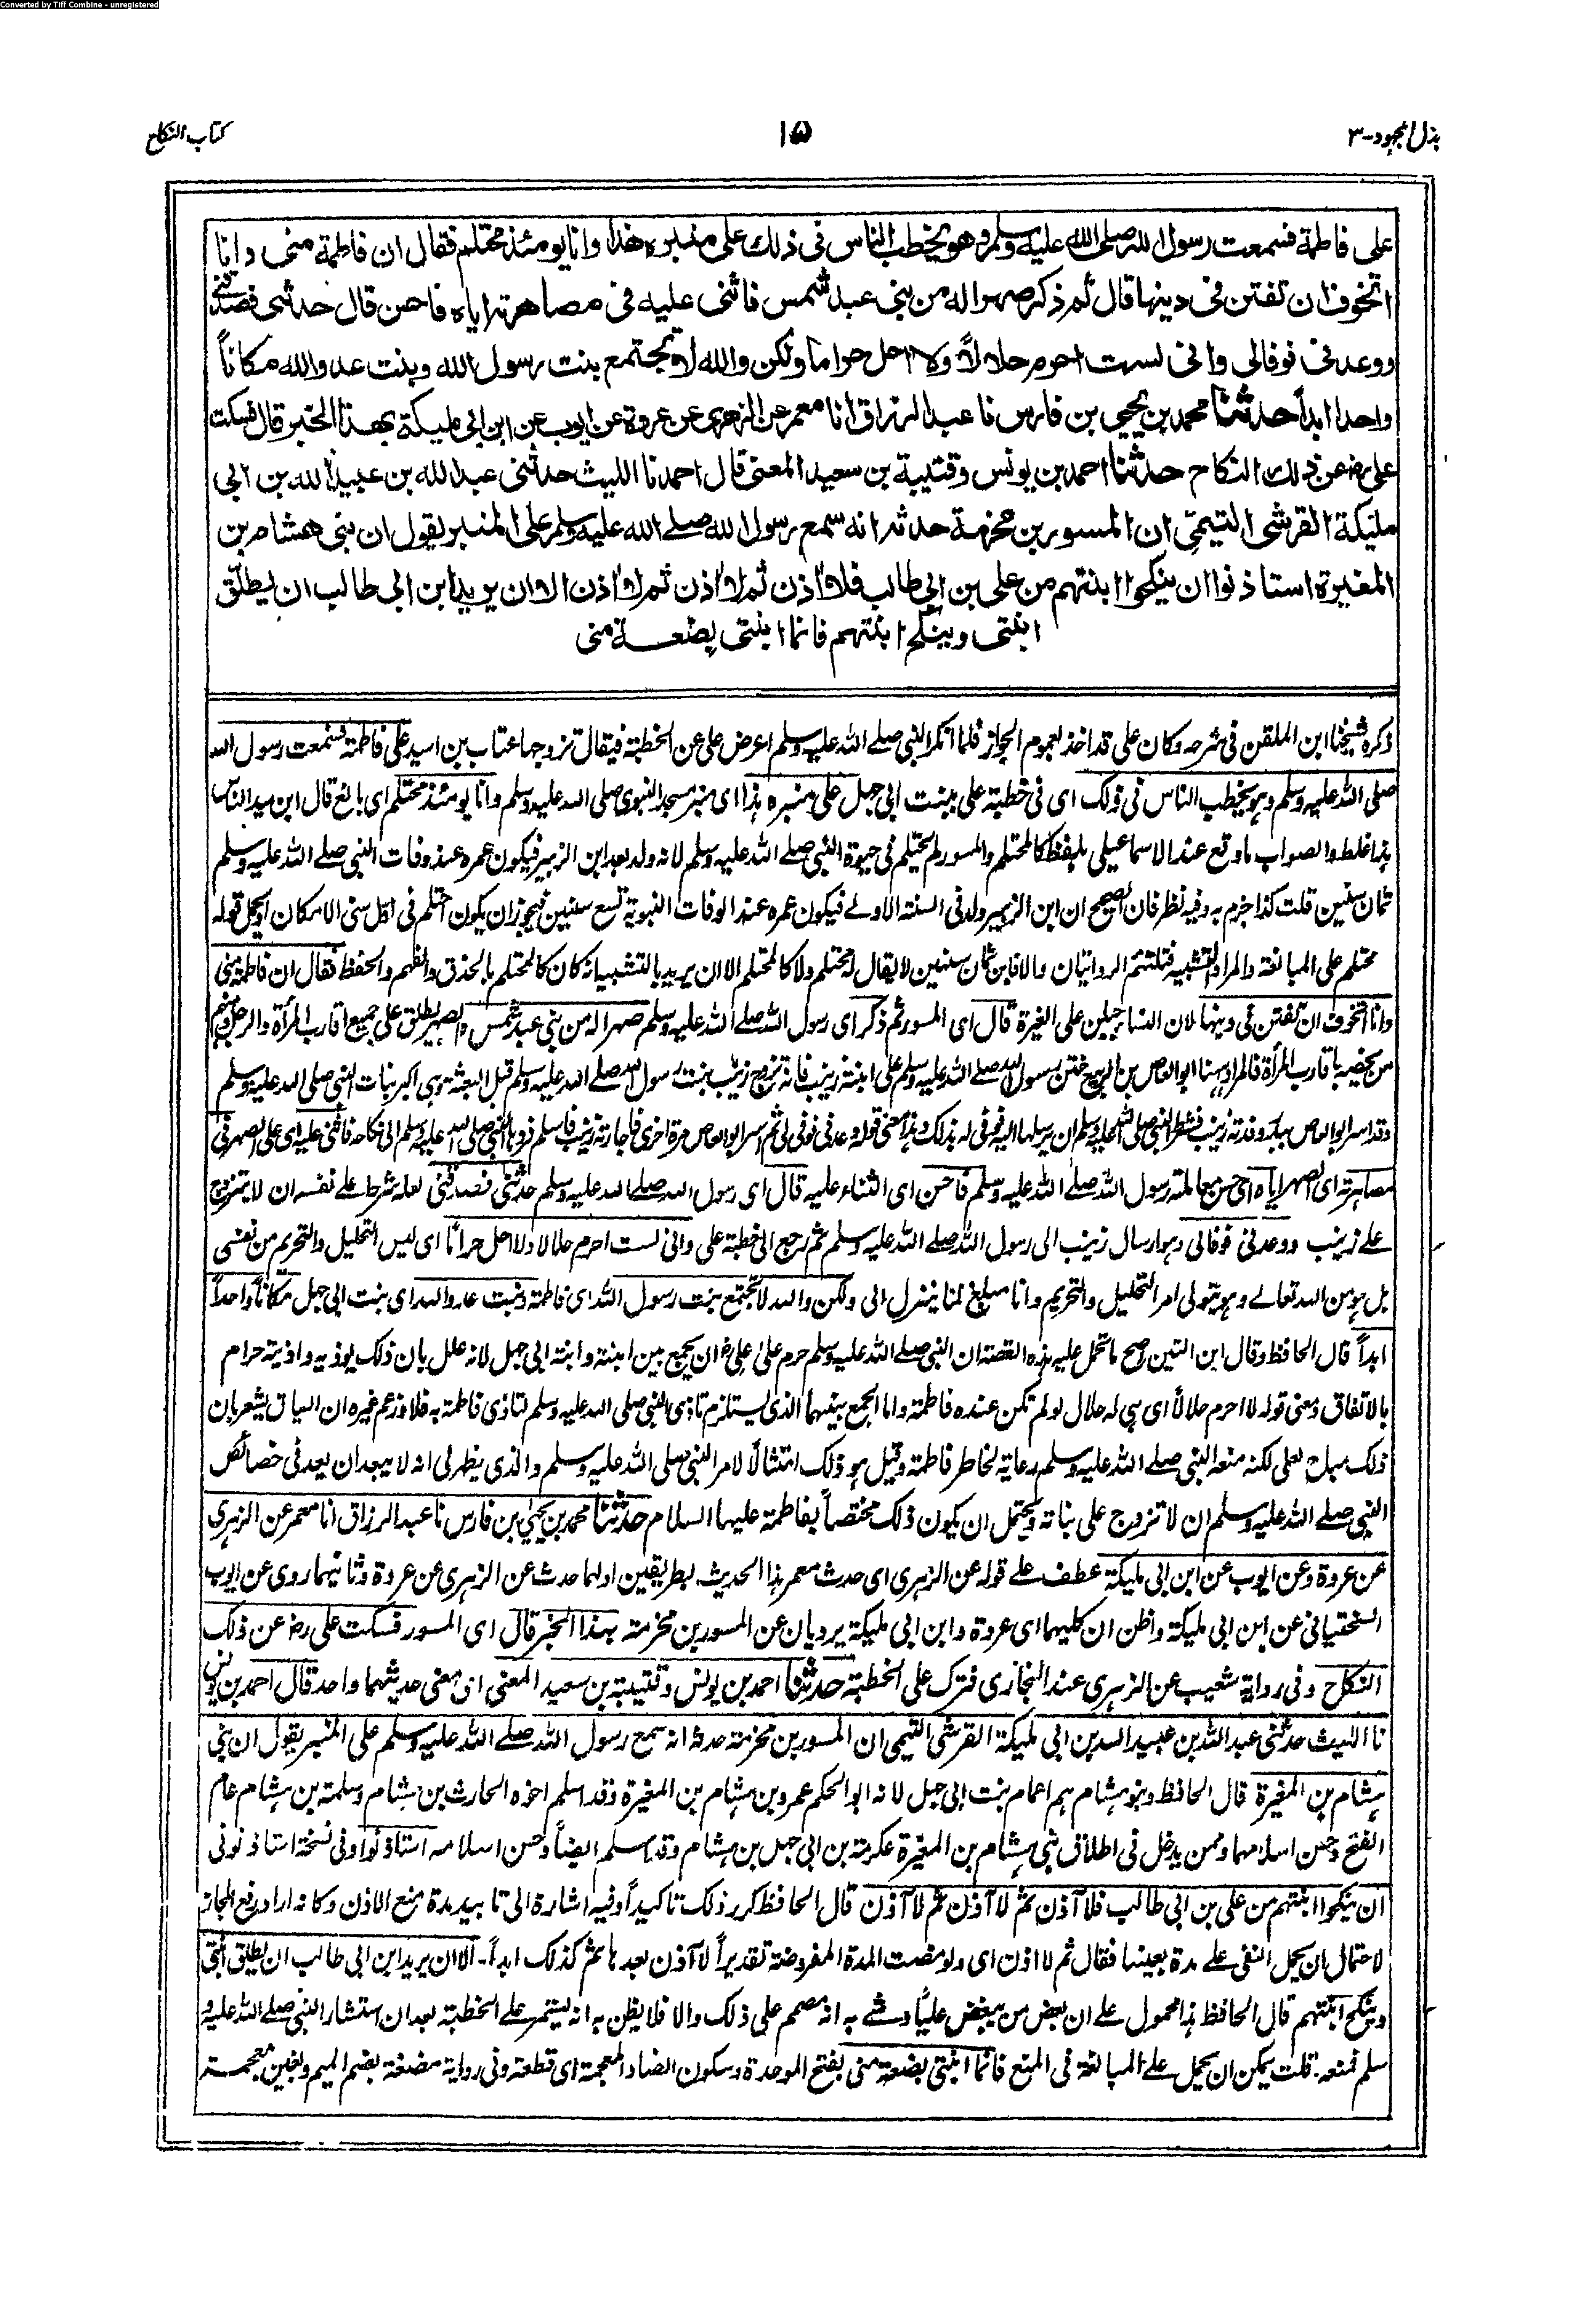 Converted by Tiff Combine - unregistered
بذل المجهود-۳
۱۵
کتاب النکاح
علی فاطمة فسمعت رسول الله صلی الله علیه وسلم وهو یخطب الناس فی ذلك علی منبره هذا وانا یومئذ محتلم فقال ان فاطمة منی وانا
اتخوف ان تفتن فی دینها قال ثم ذکر صهرا له من بنی عبد شمس فاثنی علیه فی مصاهرته ایاه فاحسن قال حدثنی فصدقنی
ووعدنی فوفالی وانی لست احرم حلالاً ولا احل حراما ولکن والله لا تجتمع بنت رسول الله وبنت عدو الله مکاناً
واحدا ابداً حدثنا محمد بن یحیی بن فارس نا عبد الرزاق انا معمر عن الزهری عن عروة عن ایوب عن ابن ابی ملیکة بهذا الخبر قال فسکت
علی رض عن ذلك النکاح حدثنا احمد بن یونس وقتیبة بن سعید المعنی قال احمد نا اللیث حدثنی عبد الله بن عبید الله بن ابی
ملیکة القرشی التیمی ان المسور بن مخرمة حدثه انه سمع رسول الله صلے الله علیه وسلم علی المنبر یقول ان بنی هشام بن
المغیرة استاذنوا ان ینکحوا ابنتهم من علی بن ابی طالب فلا اٰذن ثم لا اٰذن ثم لا اٰذن الا ان یرید ابن ابی طالب ان یطلّق
ابنتی وینکح ابنتهم فانما ابنتی بضعة منی
ذکره شیخنا ابن الملقن فی شرحه وکان علی قد اخذ بعموم الجواز فلما انکر النبی صلے الله علیه وسلم اعرض علی عن الخطبة فیقال تزوجها عتاب بن اسید علی فاطمة فسمعت رسول الله
صلی الله علیه وسلم وهو یخطب الناس فی ذلک ای فی خطبة علی بنت ابی جهل علی منبره هذا ای منبر مسجد النبوی صلی الله علیه وسلم وانا یومئذ محتلم ای بالغ قال ابن سید الناس
هذا غلط والصواب ما وقع عند الاسماعیلی بلفظ کالمحتلم والمسور لم یحتلم فی حیوة النبی صلے الله علیه وسلم لانه ولد بعد ابن الزبیر فیکون عمره عند وفات النبی صلے الله علیه وسلم
ثمان سنین قلت کذا جزم به وفیه نظر فان الصحیح ان ابن الزبیر ولد فی السنة الاولے فیکون عمره عند الوفات النبویة تسع سنین فیجوز ان یکون احتلم فی اقل سنی الامکان او یحمل قوله
محتلم علی المبالغة والمراد التشبیه فتلتئم الروایتان والا فابن ثمان سنین لا یقال له محتلم ولا کالمحتلم الا ان یرید بالتشبیه انه کان کالمحتلم بالحذق والفهم والحفظ فقال ان فاطمة منی
وانا اتخوف ان تفتن فی دینها لان النساء جبلن علی الغیرة قال ای المسور ثم ذکر ای رسول الله صلے الله علیه وسلم صهرا له من بنی عبد شمس والصهر یطلق علی جمیع اقارب المرأة والرجل ومنهم
من یخصه باقارب المرأة فالمراد ههنا ابو العاص بن الربیع ختن رسول الله صلے الله علیه وسلم علی ابنته زینب فانه تزوج زینب بنت رسول الله صلے الله علیه وسلم قبل البعثة وهی اکبر بنات النبی صلی الله علیه وسلم
وقد اسر ابو العاص ببدر وفدته زینب فشرط النبی صلی الله علیه وسلم ان یرسلها الیه فوفی له بذلک وهذا معنی قوله وعدنی فوفی لی ثم اسر ابو العاص مرة اخری فاجارته زینب فاسلم فردها النبی صلی الله علیه وسلم الی نکاحه فاثنی علیه ای علی الصهر فی
مصاهرته ای الصهر ایاه ای حسن معاملته رسول الله صلے الله علیه وسلم فاحسن ای الثناء علیه قال ای رسول الله صلے الله علیه وسلم حدثنی فصدقنی لعله شرط علے نفسه ان لا یتزوج
علے زینب ووعدنی فوفالی وهو ارسال زینب الی رسول الله صلے الله علیه وسلم ثم رجع الی خطبة علی وانی لست احرم حلالا ولا احل حراماً ای لیس التحلیل والتحریم من نفسی
بل هو من الله تعالے وهو یتولی امر التحلیل والتحریم وانا مبلغ لما ینزل الی ولکن والله لا تجتمع بنت رسول الله ای فاطمة وبنت عدو الله ای بنت ابی جهل مکاناً واحداً
ابداً قال الحافظ وقال ابن التین اصح ما تحمل علیه هذه القصة ان النبی صلے الله علیه وسلم حرم علی علی ان یجمع بین ابنته وابنة ابی جهل لانه علل بان ذلک یوذیه واذیته حرام
بالاتفاق ومعنی قوله لا احرم حلالاً ای هی له حلال لو لم تکن عنده فاطمة واما الجمع بینهما الذی یستلزم تاذی النبی صلی الله علیه وسلم لتاذی فاطمة به فلا وزعم غیره ان السیاق یشعر بان
ذلک مباح لعلی لکنه منعه النبی صلے الله علیه وسلم رعایة لخاطر فاطمة وقبل هو ذلک امتثالاً لامر النبی صلی الله علیه وسلم والذی یظهر لی انه لا یبعد ان یعد فی خصائص
النبی صلے الله علیه وسلم ان لا تتزوج علی بناته ویحتمل ان یکون ذلک مختصاً بفاطمة علیها السلام حدثنا محمد بن یحیٰی بن فارس نا عبد الرزاق انا معمر عن الزهری
عن عروة وعن ایوب عن ابن ابی ملیکة عطف علے قوله عن الزهری ای حدث معمر هذا الحدیث بطریقین اولهما حدث عن الزهری عن عروة وثانیهما روی عن ایوب
السختیانی عن ابن ابی ملیکة واظن ان کلیهما ای عروة وابن ابی ملیکة یرویان عن المسور بن مخرمة بهذا الخبر قال ای المسور فسکت علی رض عن ذلک
النکاح وفی روایة شعیب عن الزهری عند البخاری فترک علی الخطبة حدثنا احمد بن یونس وقتیبة بن سعید المعنی ای معنی حدیثهما واحد قال احمد بن یونس
نا اللیث حدثنی عبد الله بن عبید الله بن ابی ملیکة القرشی التیمی ان المسور بن مخرمة حدثه انه سمع رسول الله صلے الله علیه وسلم علی المنبر یقول ان بنی
هشام بن المغیرة قال الحافظ وبنو هشام هم اعمام بنت ابی جهل لانه ابو الحکم عمرو بن هشام بن المغیرة وقد اسلم اخوه الحارث بن هشام وسلمة بن هشام عام
الفتح وحسن اسلامهما وممن یدخل فی اطلاق بنی هشام بن المغیرة عکرمة بن ابی جهل بن هشام وقد اسلم ایضاً وحسن اسلامه استاذنوا وفی نسخة استاذنونی
ان ینکحوا ابنتهم من علی بن ابی طالب فلا آذن ثم لا آذن ثم لا آذن قال الحافظ کرر ذلک تاکیداً وفیه اشارة الی تابید مدة منع الاذن وکانه اراد رفع المجاز
لاحتمال ان یحمل النفی علے مدة بعینها فقال ثم لا اذن ای ولو مضت المدة المفروضة تقدیراً لا آذن بعدها ثم کذلک ابداً۔ الا ان یرید ابن ابی طالب ان یطلق ابنتی
وینکح ابنتهم قال الحافظ هذا محمول علے ان بعض من یبغض علیاً وشے به انه مصمم علی ذلک والا فلا یظن به انه یستمر علے الخطبة بعد ان استشار النبی صلے الله علیه و
سلم فمنعه۔ قلت یمکن ان یحمل علے المبالغة فی المنع فانما ابنتی بضعة منی بفتح الموحدة وسکون الضاد المعجمة ای قطعة وفی روایة مضغة بضم المیم وبغین معجمة